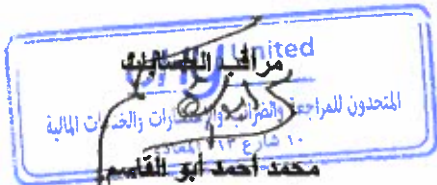 United
مراقب الحسابات
المتحدون للمراجعة والضرائب والاستشارات والخدمات المالية
١٠ شارع ٢١٣ المعادي
محمد أحمد أبو القاسم